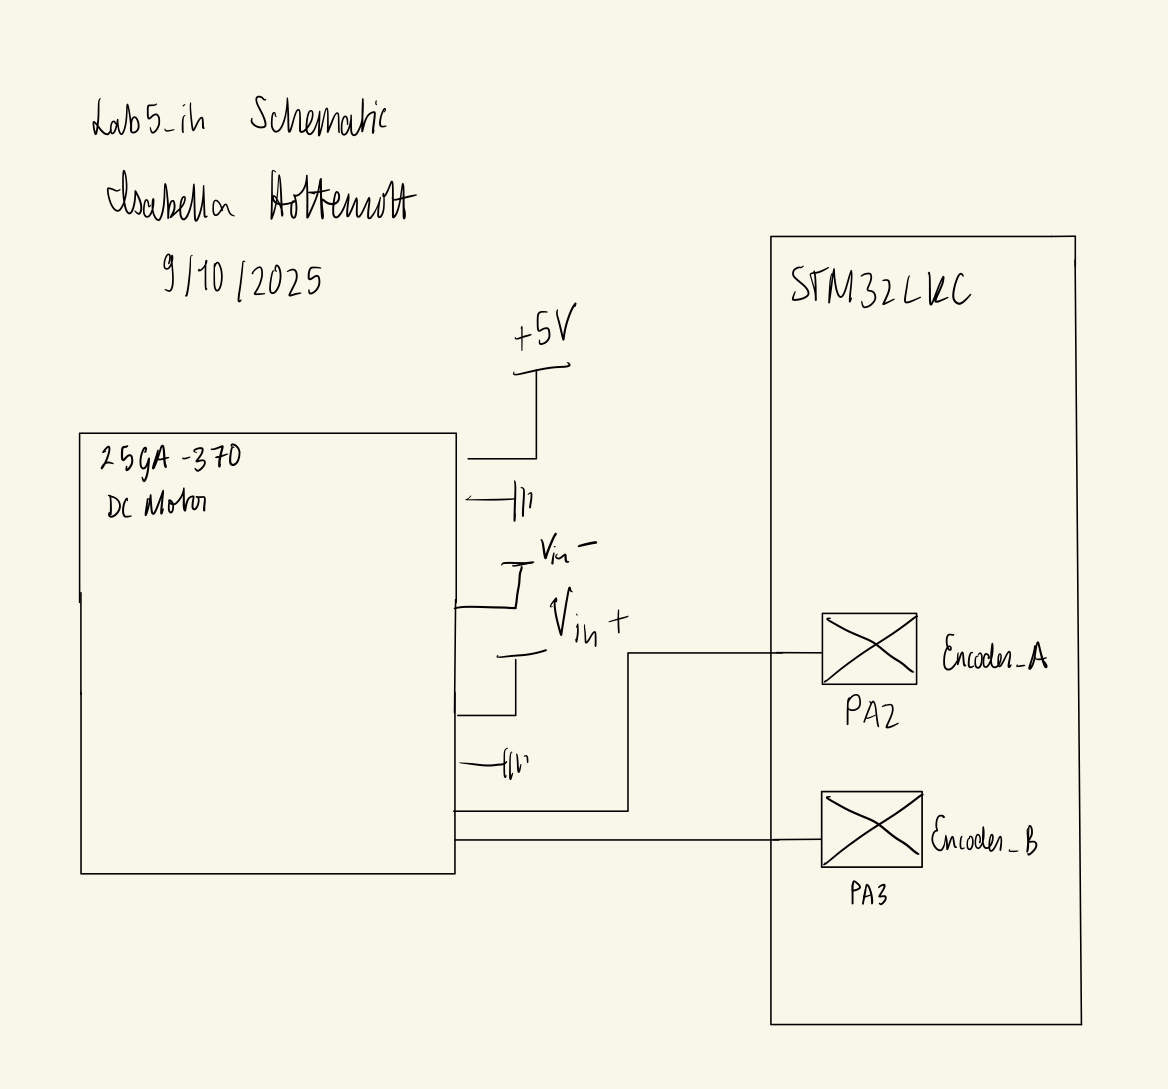 Lab5_ih Schematic
Isabella Hottenrott
9/10/2025
STM32LKC
+5V
25GA-370
DC Motor
Vin -
Vin +
Encoder_A
PA2
Encoder_B
PA3